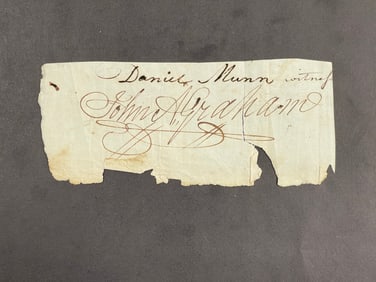 Daniel Munn witness
John A. Graham